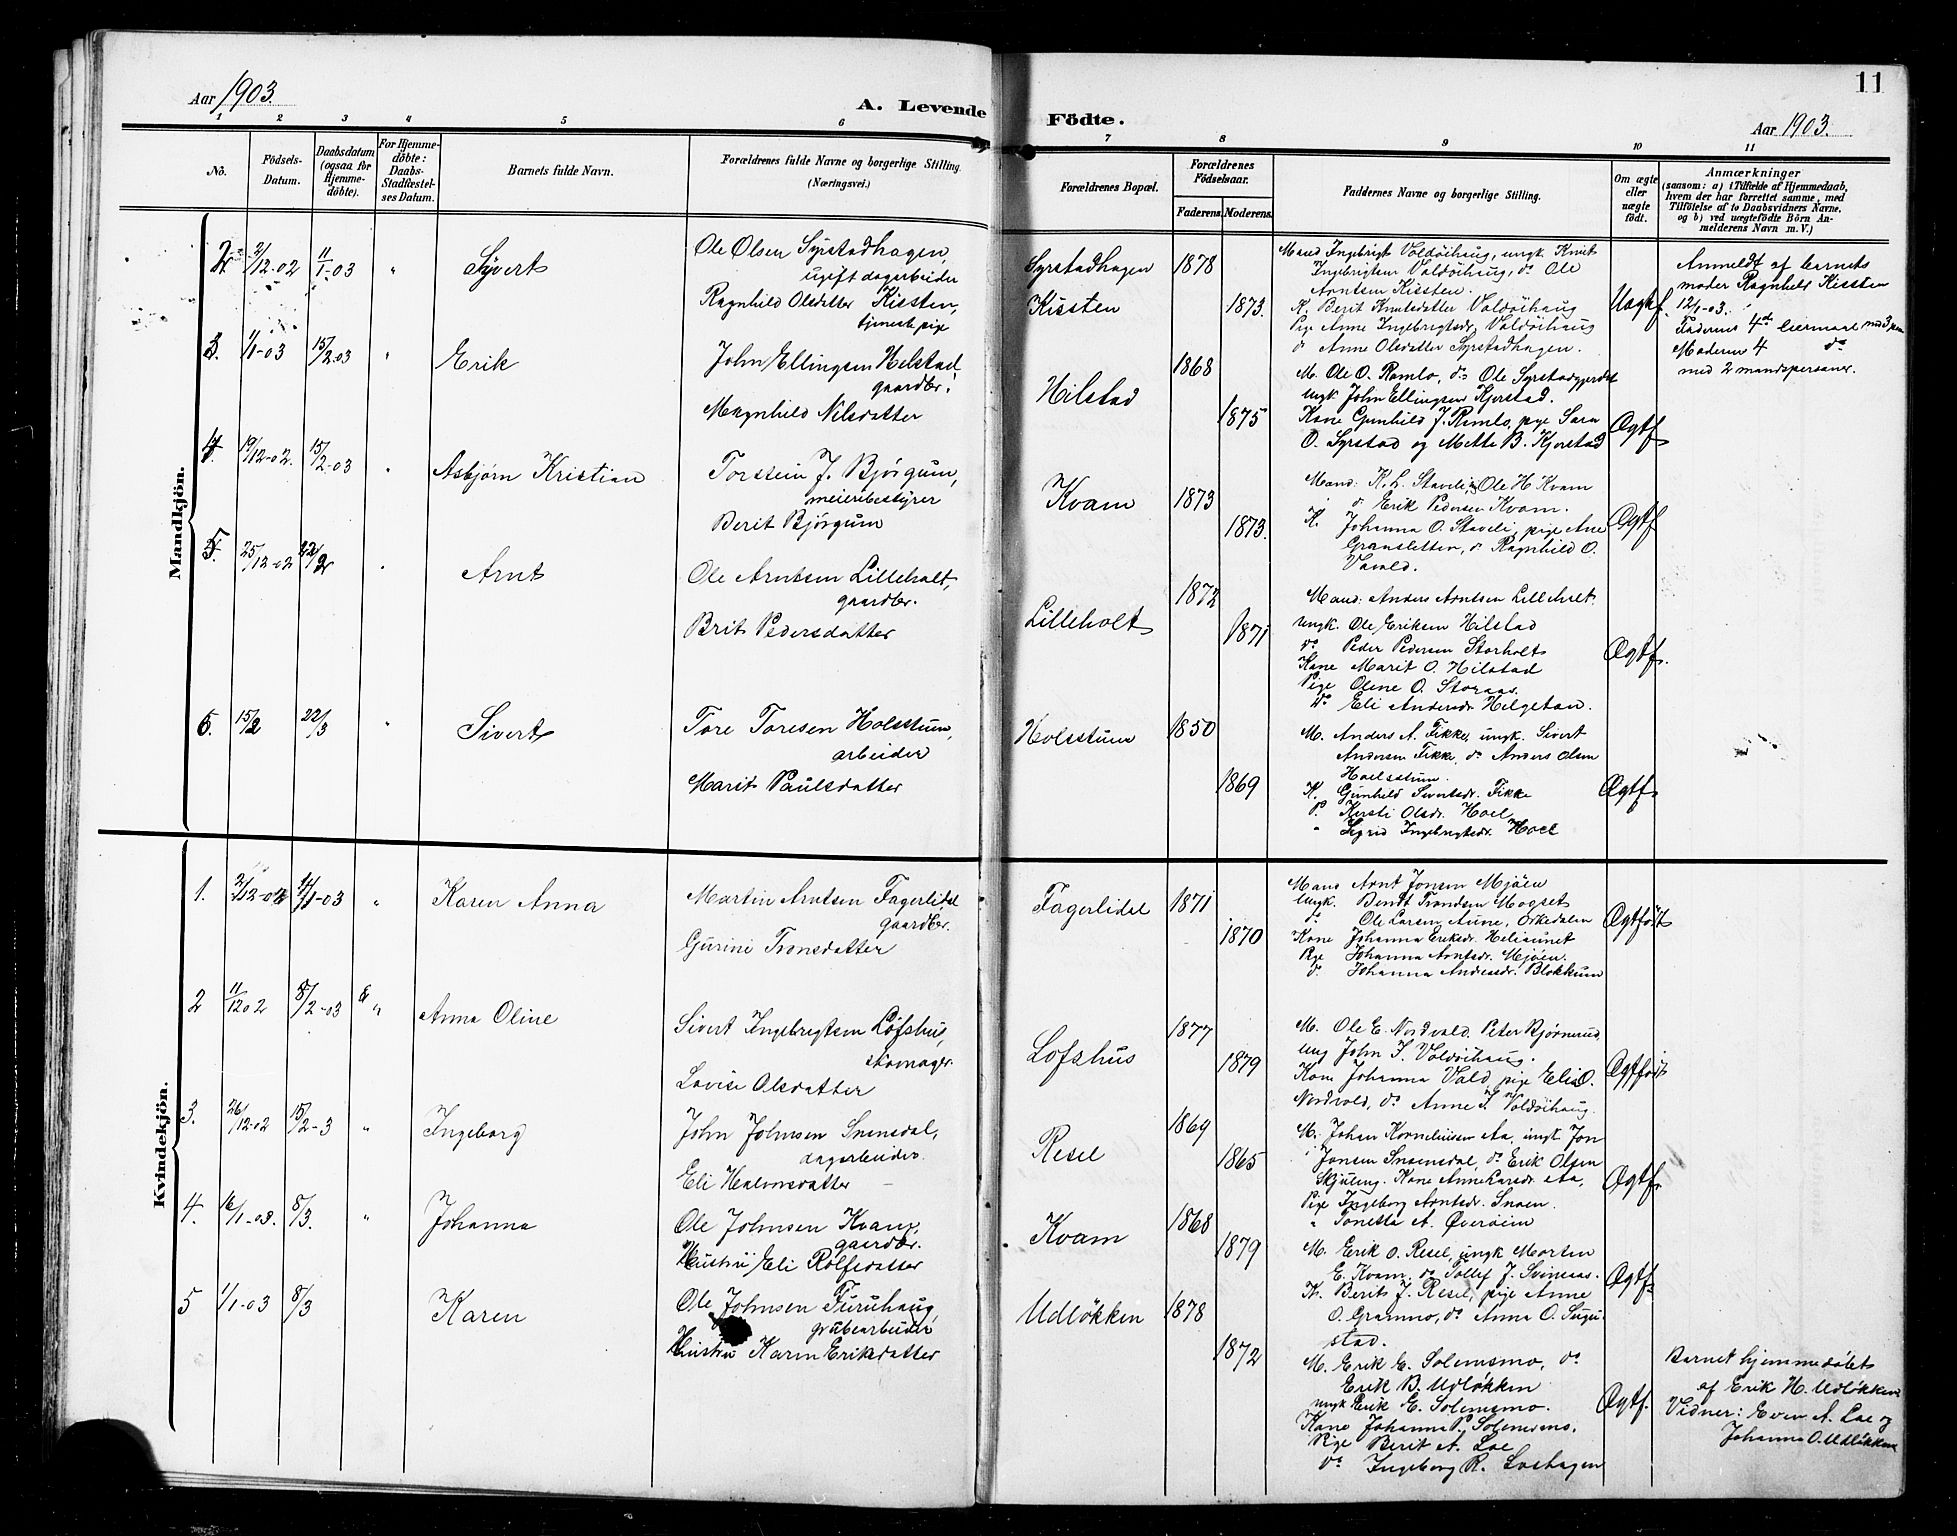 Aar 1903.
A. Levende
Födte.
Aar 1903.
11
1 2 3 4 5 6 7 8 9 10 11
No.
Födsels-
Datum.
Daabsdatum
(ogsaa for
Hjemme-
döbte).
For Hjemme-
döbte:
Daabs-
Stadfæstel-
ses Datum.
Barnets fulde Navn.
Forældrenes fulde Navne og borgerlige Stilling.
(Næringsvei.)
Forældrenes Bopæl.
Forældrenes
Födselsaar.
Faderens. Moderens.
Faddernes Navne og borgerlige Stilling.
Om ægte
eller
uægte
födt.
Anmærkninger
(saasom: a) i Tilfælde af Hjemmedaab,
hvem der har forrettet samme, med
Tilföielse af to Daabsvidners Navne,
og b) ved uægtefödte Börn An-
melderens Navn m. V.)
Mandkjön.
2 2/12-02 11/1-03 " Syvert
Ole Olsen Syrstadhagen,
ugift dagarbeider
Ragnhild Olsdatter Kissten,
tjenestepige
Syrstadhagen 1878
Kissten 1873.
Mand Ingebrigt Voldöihaug, ungk. Knut
Ingebrigtsen Voldöihaug, do Ole
Arntsen Kissten.
K. Berit Knutsdatter Voldöihaug
Pige Anne Ingebrigtsdr. Voldöihaug
do Anne Olsdatter Syrstadhagen.
Uægtf.
Anmeldt af barnets
moder Ragnhild Kissten
12/1-03.
Faderens 4de leiermaal med 3 
Moderen 4 do
med 2 mandspersoner.
3. 1/1-03 15/2-03 " Erik
John Ellingsen Hilstad,
gaardbr.
Magnhild Nilsdatter
Hilstad 1868
1875
M. Ole O. Romlo, do Ole Syrstadgjerdet
ungk John Ellingsen Kjorstad.
Kone Gunhild J. Romlo, pige Sara
O. Syrstad og Mette B. Kjorstad
Ægtf
4. 19/12-02. 15/2-03 " Asbjørn Kristian
Torstein J. Bjørgum,
meieribestyrer
Berit Bjørgum
Kvam 1873
1873.
Mand: K. L. Staveli, Ole H Kvam
do Erik Pedersen Kvam.
K. Johanna O. Staveli, pige Ane
Gransletten, do Ragnhild O.
Vavold.
Ægtf
5. 25/12-02 22/2 " Arnt
Ole Arntsen Lilleholt,
gaardbr.
Brit Pedersdatter
Lilleholt 1872
1871
Mand: Anders Arntsen Lilleholt
ungk. Ole Eriksen Hilstad
do Peder Pedersen Storholt
Kone Marit O. Hilstad
Pige Oline O. Storaas
do Eli Andersdr Helgetun.
Ægtf.
6. 15/2 22/3 " Sivert
Tore Toresen Holsstum,
arbeider
Marit Paulsdatter
Holsstum 1850
1869
M. Anders A. Fikke, ungk. Sivert
Andersen Fikke, do Anders Olsen
Hoelsstum.
K. Gunhild Sivertsdr. Fikke
P. Kersti Olsdr. Hoel
" Sigrid Ingebrigtsdr. Hoel
Ægtf.
Kvindekjön.
1. 2/12-02 11/1-03 " Karen Anna
Martin Arntsen Fagerlidal
gaardbr.
Gurine Tronsdatter
Fagerlidal 1871
1870
Mand Arnt Jonsen Mjøen
Ungk. Bendt Trondsen Mogset
do Ole Larsen Aune, Orkedalen
Kone Johanna Eriksdr.
Pige Johanna Arntsdr. Mjøen.
d. Johanna Andersdr. Blokkum
Ægtfödt
2 11/12 02 8/2-03 " Anna Oline
Sivert Ingebrigtsen Løfshus,
skomager.
Lovise Olsdatter
Lofshus 1877
1879
M. Ole E. Nordvold. Peter Bjørnund
ung John I. Voldöihaug.
Kone Johanna Vold, pige Eli O.
Nordvold, do Anne I. Voldöihaug.
Ægtfödt
3. 26/12-02 15/2-3 " Ingeborg
John Johnsen Snoensdal,
dagarbeider.
Eli Halvorsdatter
Resel 1869
1865
M. Johan Kornelinsen Aa, ungk Jon
Jonsen Snoensdal, do Erik Olsen
Skjuling. Kone Anne Larsdr. Aa,
Pige Ingeborg Arntsdr. Snoen.
" Tonetta A. Øverøien
Ægtf.
4. 16/1-03. 8/3. " Johanna
Ole Johnsen Kvam,
gaardbr.
Hustru Eli Rolfsdatter
Kvam 1868
1879
M. Erik O. Resel, ungk Morten
E. Kvam, do Tollef J. Svinsaas.
K. Berit J. Resel, pige Anne
O. Gramno, do Anna O. Sugu-
stad.
Ægtf.
5 1/1-03 8/3 Karen
Ole Johnsen Furuhaug,
grubearbeider
Hustru Karen Eriksdatter
Udløkken 1878
1872
M. Erik E. Solemsmo, do
Erik B. Udløkken
ungk Erik E. Solemsmo.
Kone Johanna P. Solemsmo.
Pige Berit A. Loe
do Ingeborg R. Loehagen
Ægtf.
Barnet hjemmedøbt
af Erik H. Udløkken
Vidner: Even A. Loe og
Johanna O. Udløkken